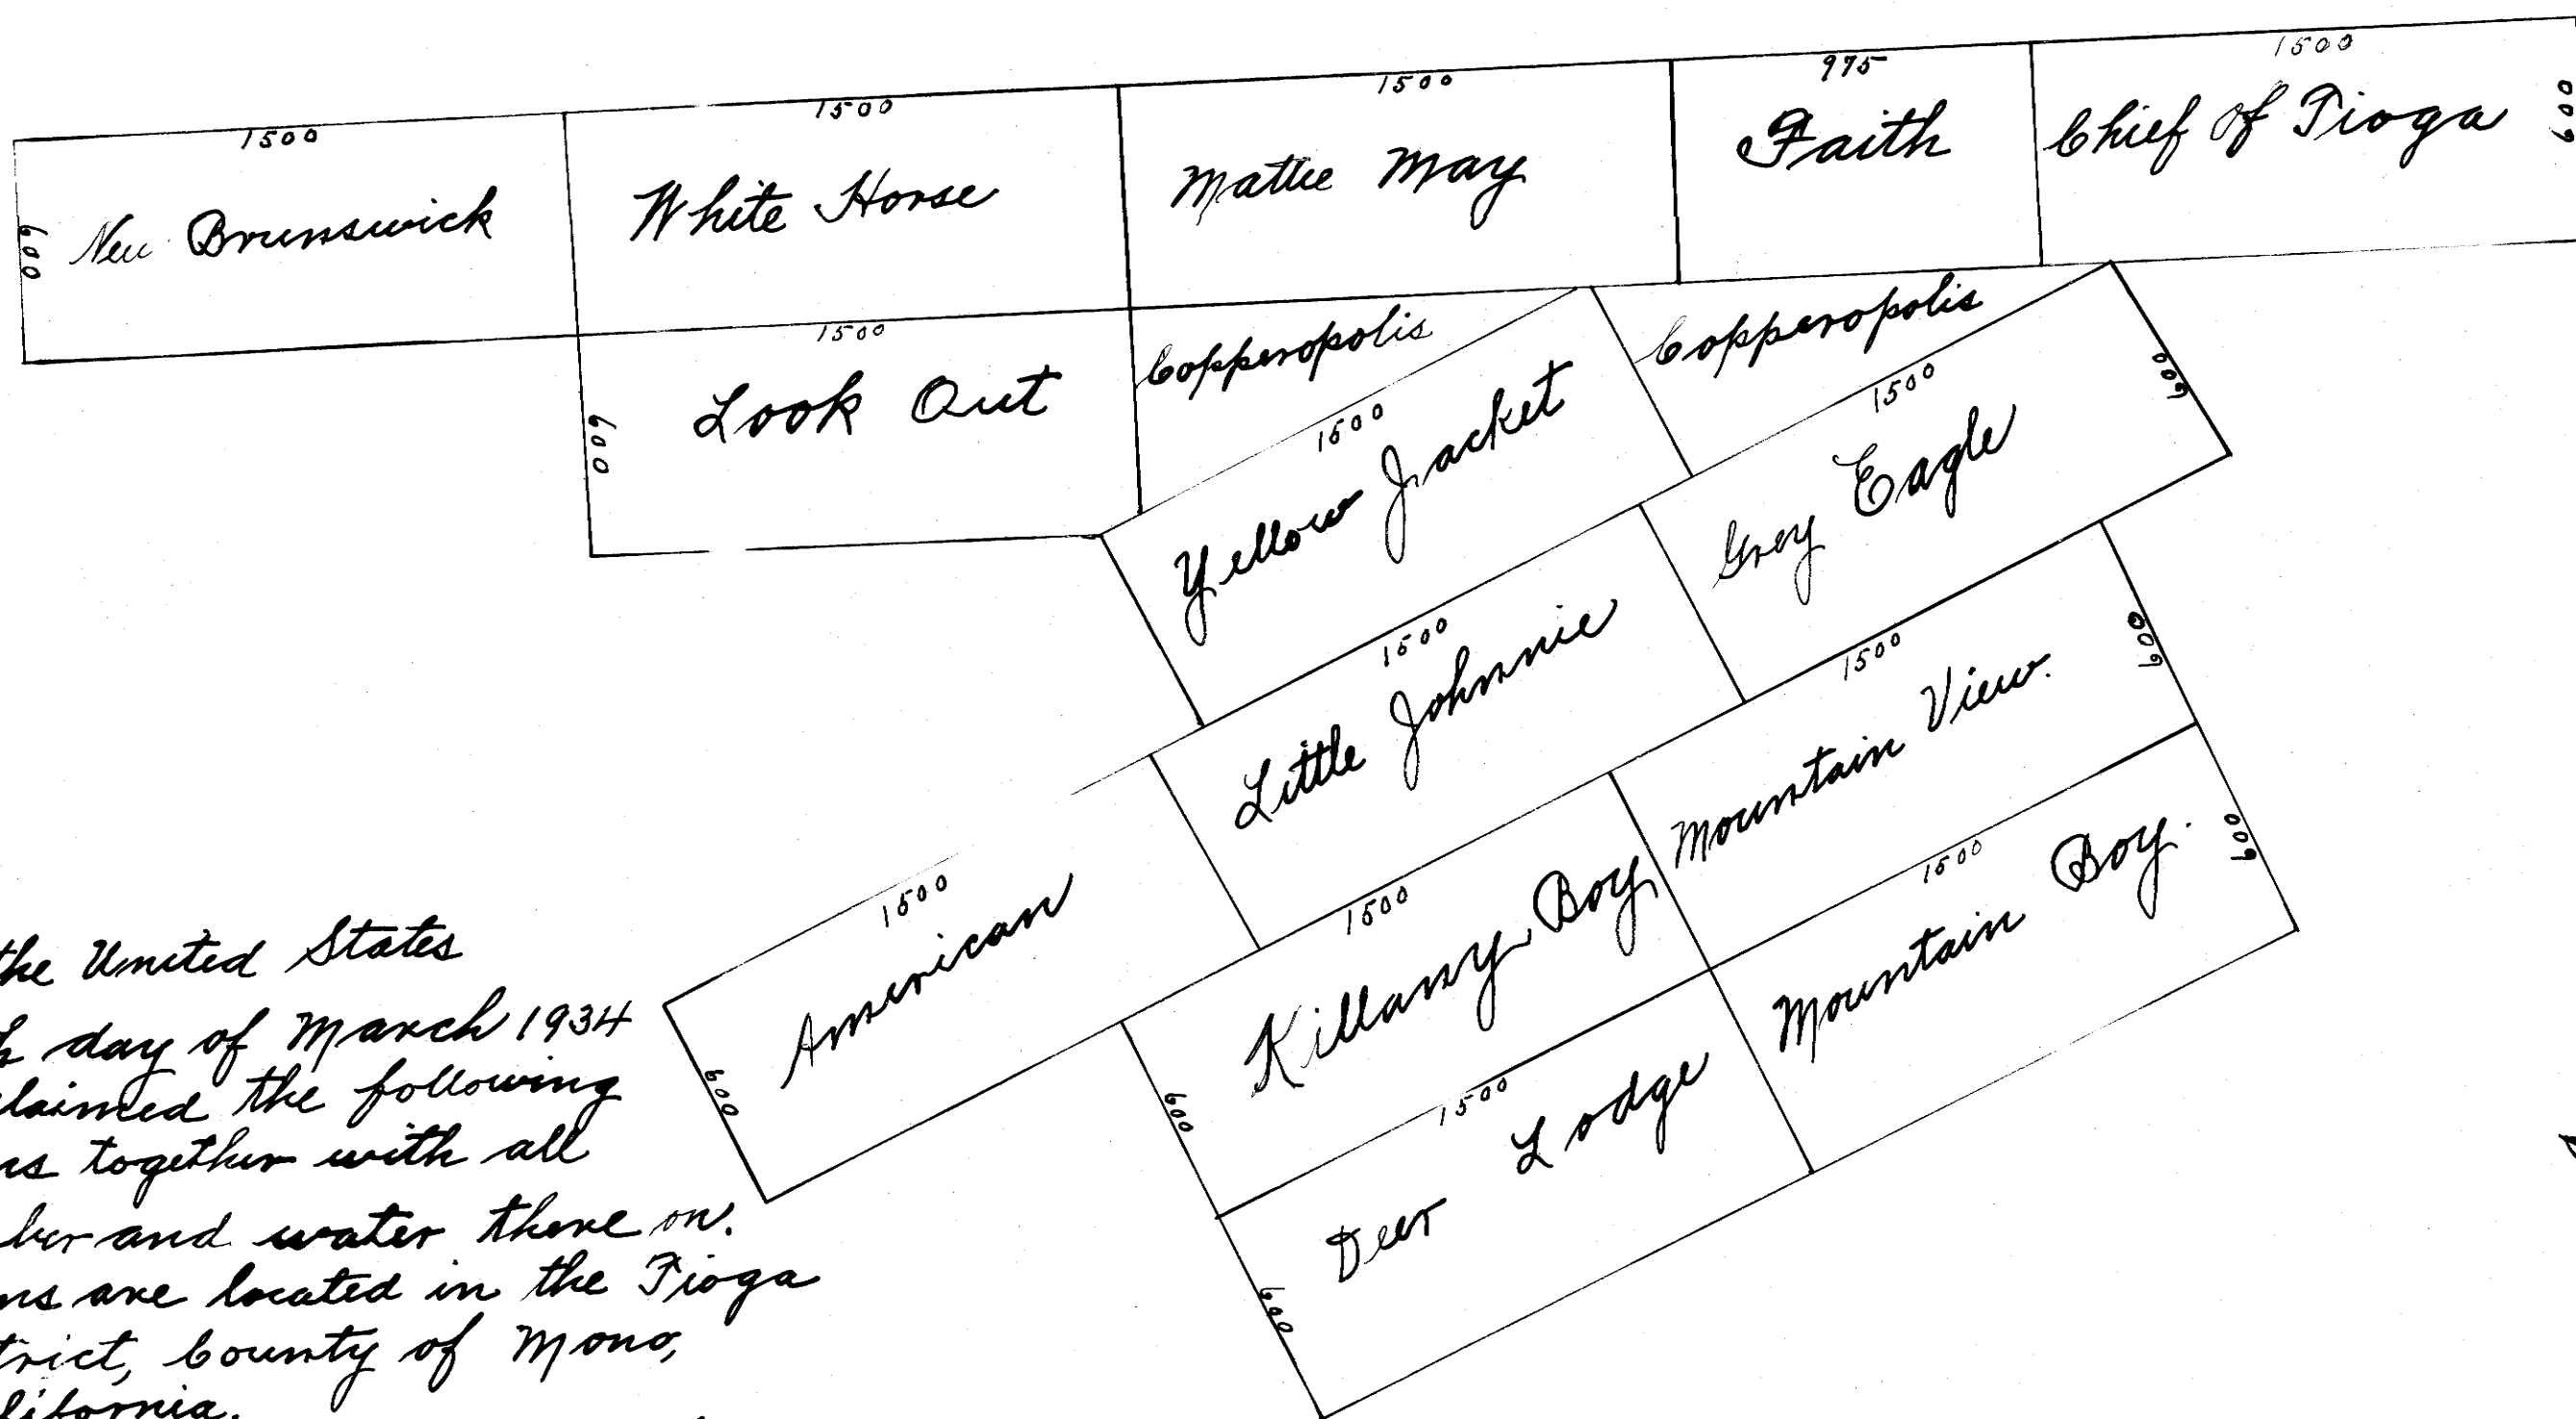 1500
1500
1500
975
1500
600
New Brunswick
White Horse
Mattie May
Faith
Chief of Tioga
600
1500
Look Out
600
Copperopolis
Copperopolis
1500
Yellow Jacket
1500
Grey Eagle
600
1500
Little Johnnie
1500
Mountain View.
600
1500
American
600
1500
Killarny Boy
600
1500
Mountain Boy.
600
1500
Deer Lodge
600
the United States
day of March 1934
laimed the following
ns together with all
ber and water there on.
ns are located in the Tioga
trict, County of Mono,
lifornia.